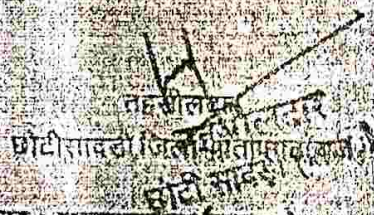 तहसीलदार
छोटीसादडी जिला प्रतापगढ़ (राज.)
छोटी सादड़ी